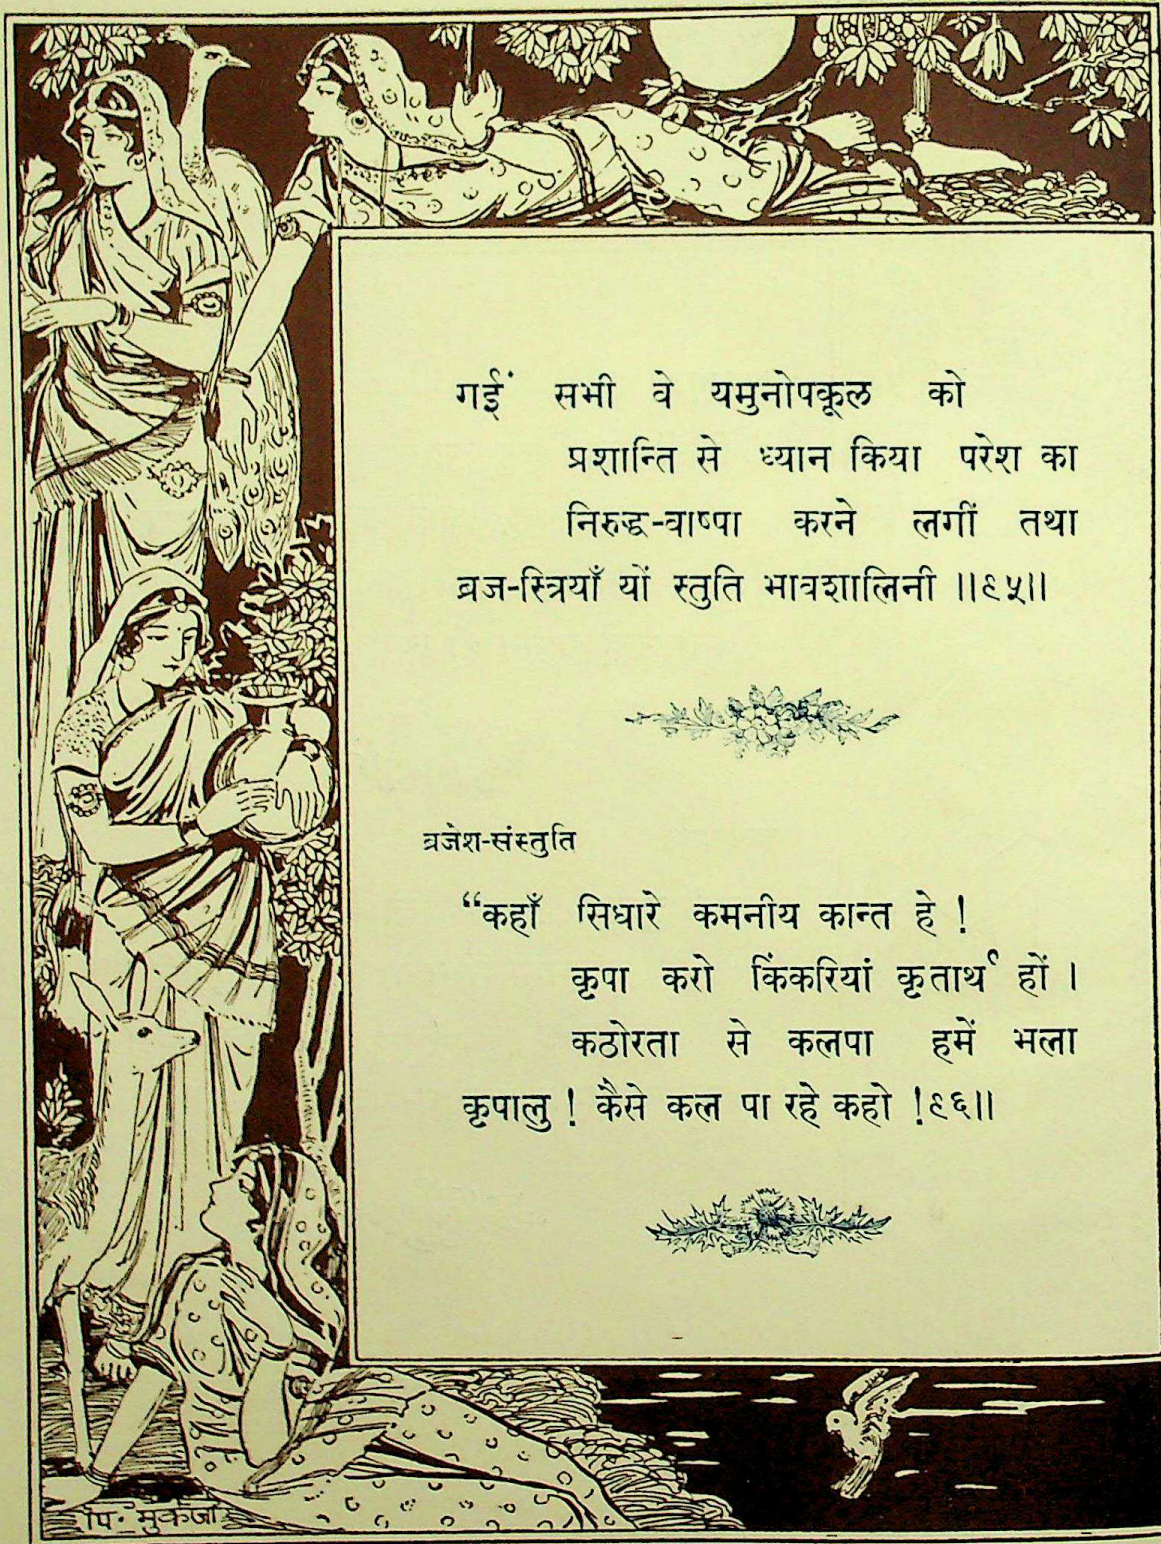 गईं सभी वे यमुनोपकूल को
प्रशान्ति से ध्यान किया परेश का
निरुद्ध-वाष्पा करने लगीं तथा
व्रज-स्त्रियाँ यों स्तुति भावशालिनी ॥९५॥
व्रजेश-संस्तुति
“कहाँ सिधारे कमनीय कान्त हे !
कृपा करो किंकरियां कृतार्थ हों ।
कठोरता से कलपा हमें भला
कृपालु ! कैसे कल पा रहे कहो !९६॥
पि. मुकर्जी